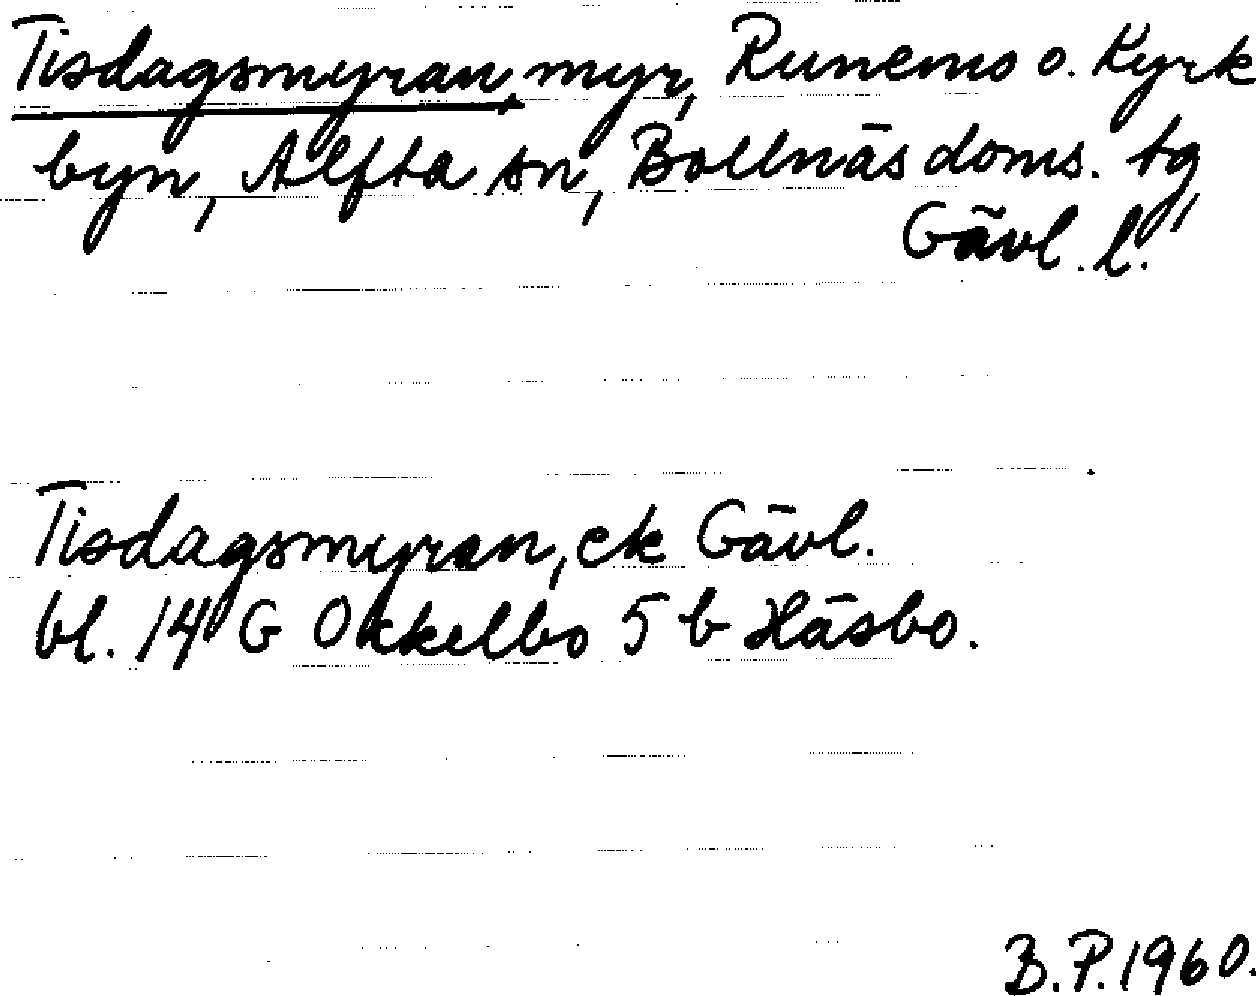 Tisdagsmyran, myr, Runemo o. Kyrk
byn, Alfta sn, Bollnäs doms. tg,
Gävl. l.
Tisdagsmyran, ek Gävl.
bl. 14 G Ockelbo 5 b Häsbo.
B.P. 1960.